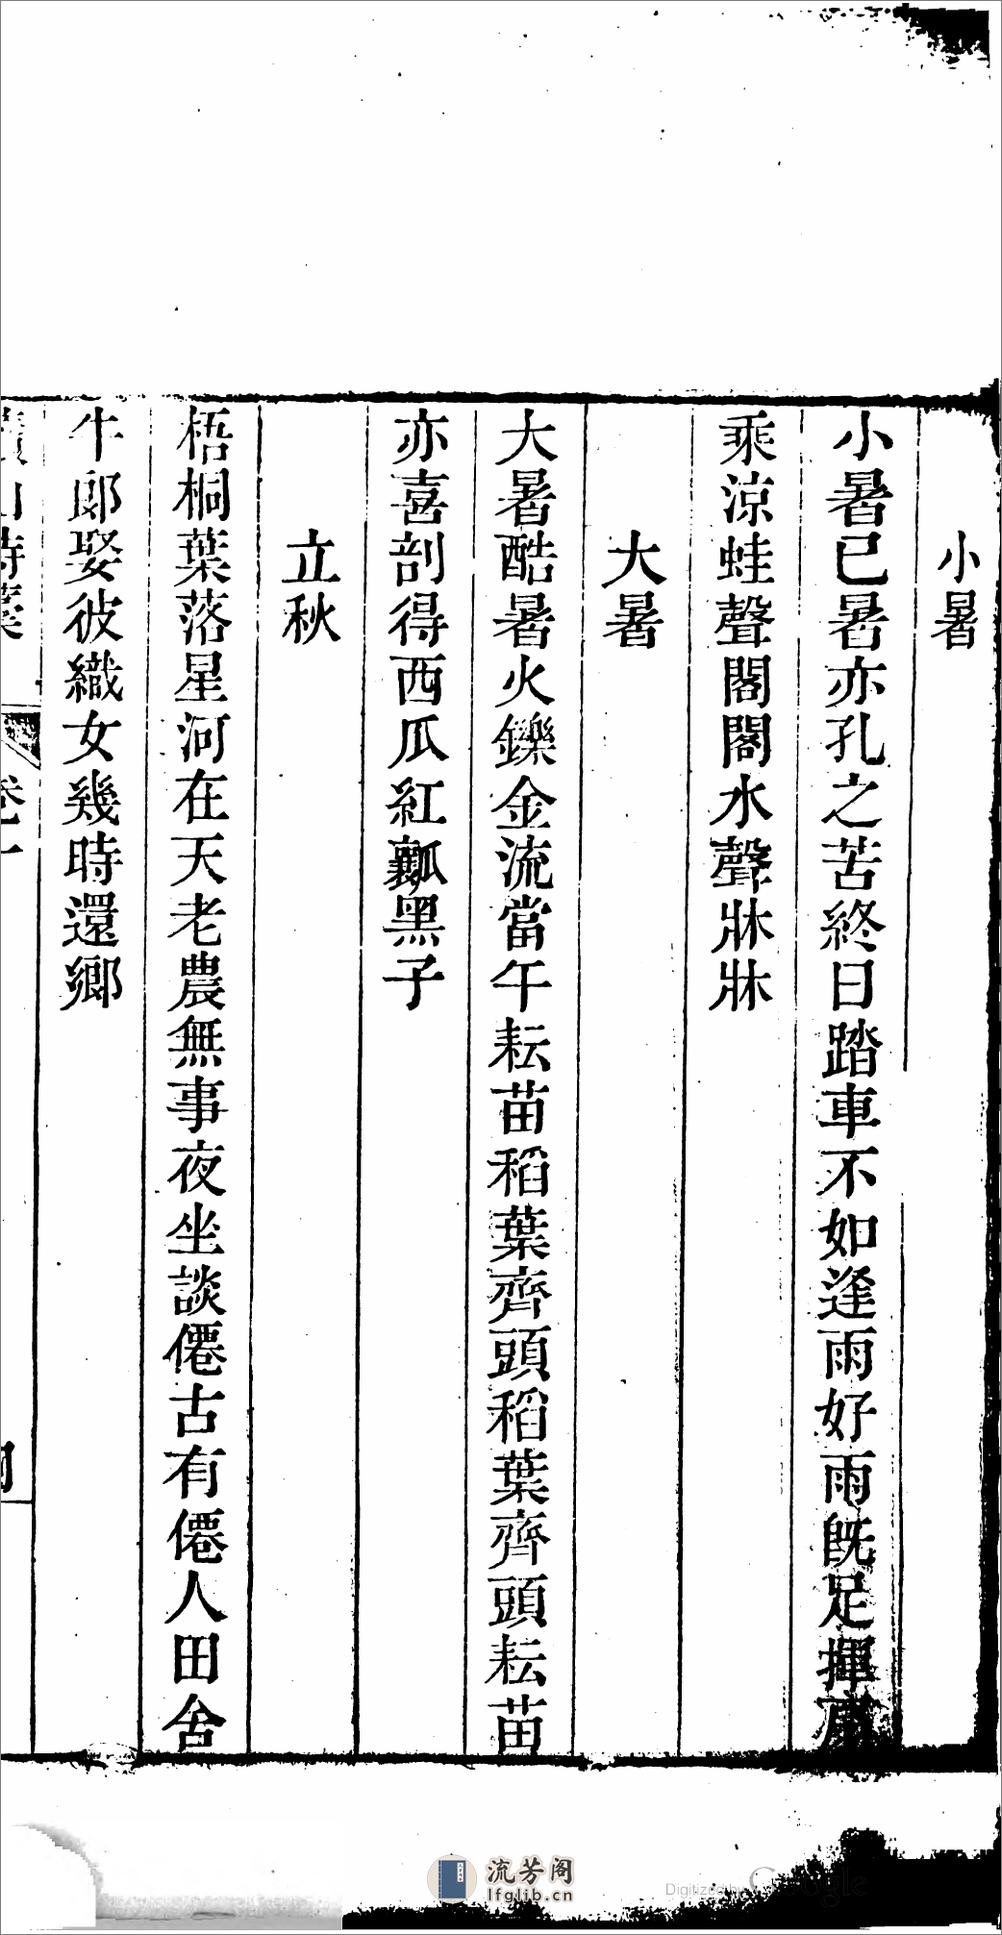 小暑
小暑已暑亦孔之苦終日踏車不如逢雨好雨旣足揮扇
乘涼蛙聲閣閣水聲牀牀
大暑
大暑酷暑火鑠金流當午耘苗稻葉齊頭稻葉齊頭耘苗
亦喜剖得西瓜紅瓤黑子
立秋
梧桐葉落星河在天老農無事夜坐談僊古有僊人田舍
牛郎娶彼織女幾時還鄉
山詩
卷一
流芳阁
lfglib.cn
Digitized by Google